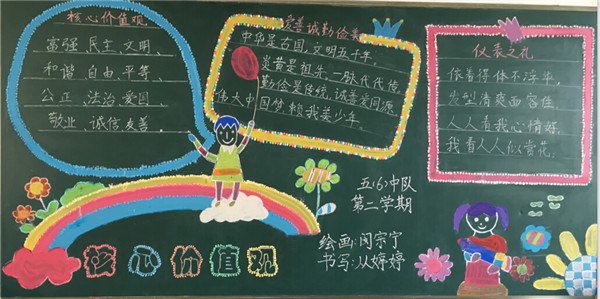 核心价值观
富强 民主 文明、
和谐 自由 平等、
公正、法治 爱国、
敬业、诚信 友善、
爱善诚勤俭美
中华是古国,文明五千年
炎黄是祖先,一脉代代传
勤俭是传统,诚善爱同源
伟大中国梦,赖我美少年。
仪表之礼
依着得体不浮华,
发型清爽面容佳
人人看我心情好,
我看人人似赏花。
五(6)中队
第二学期
绘画:闵宗宁
书写:从婷婷
核心价值观